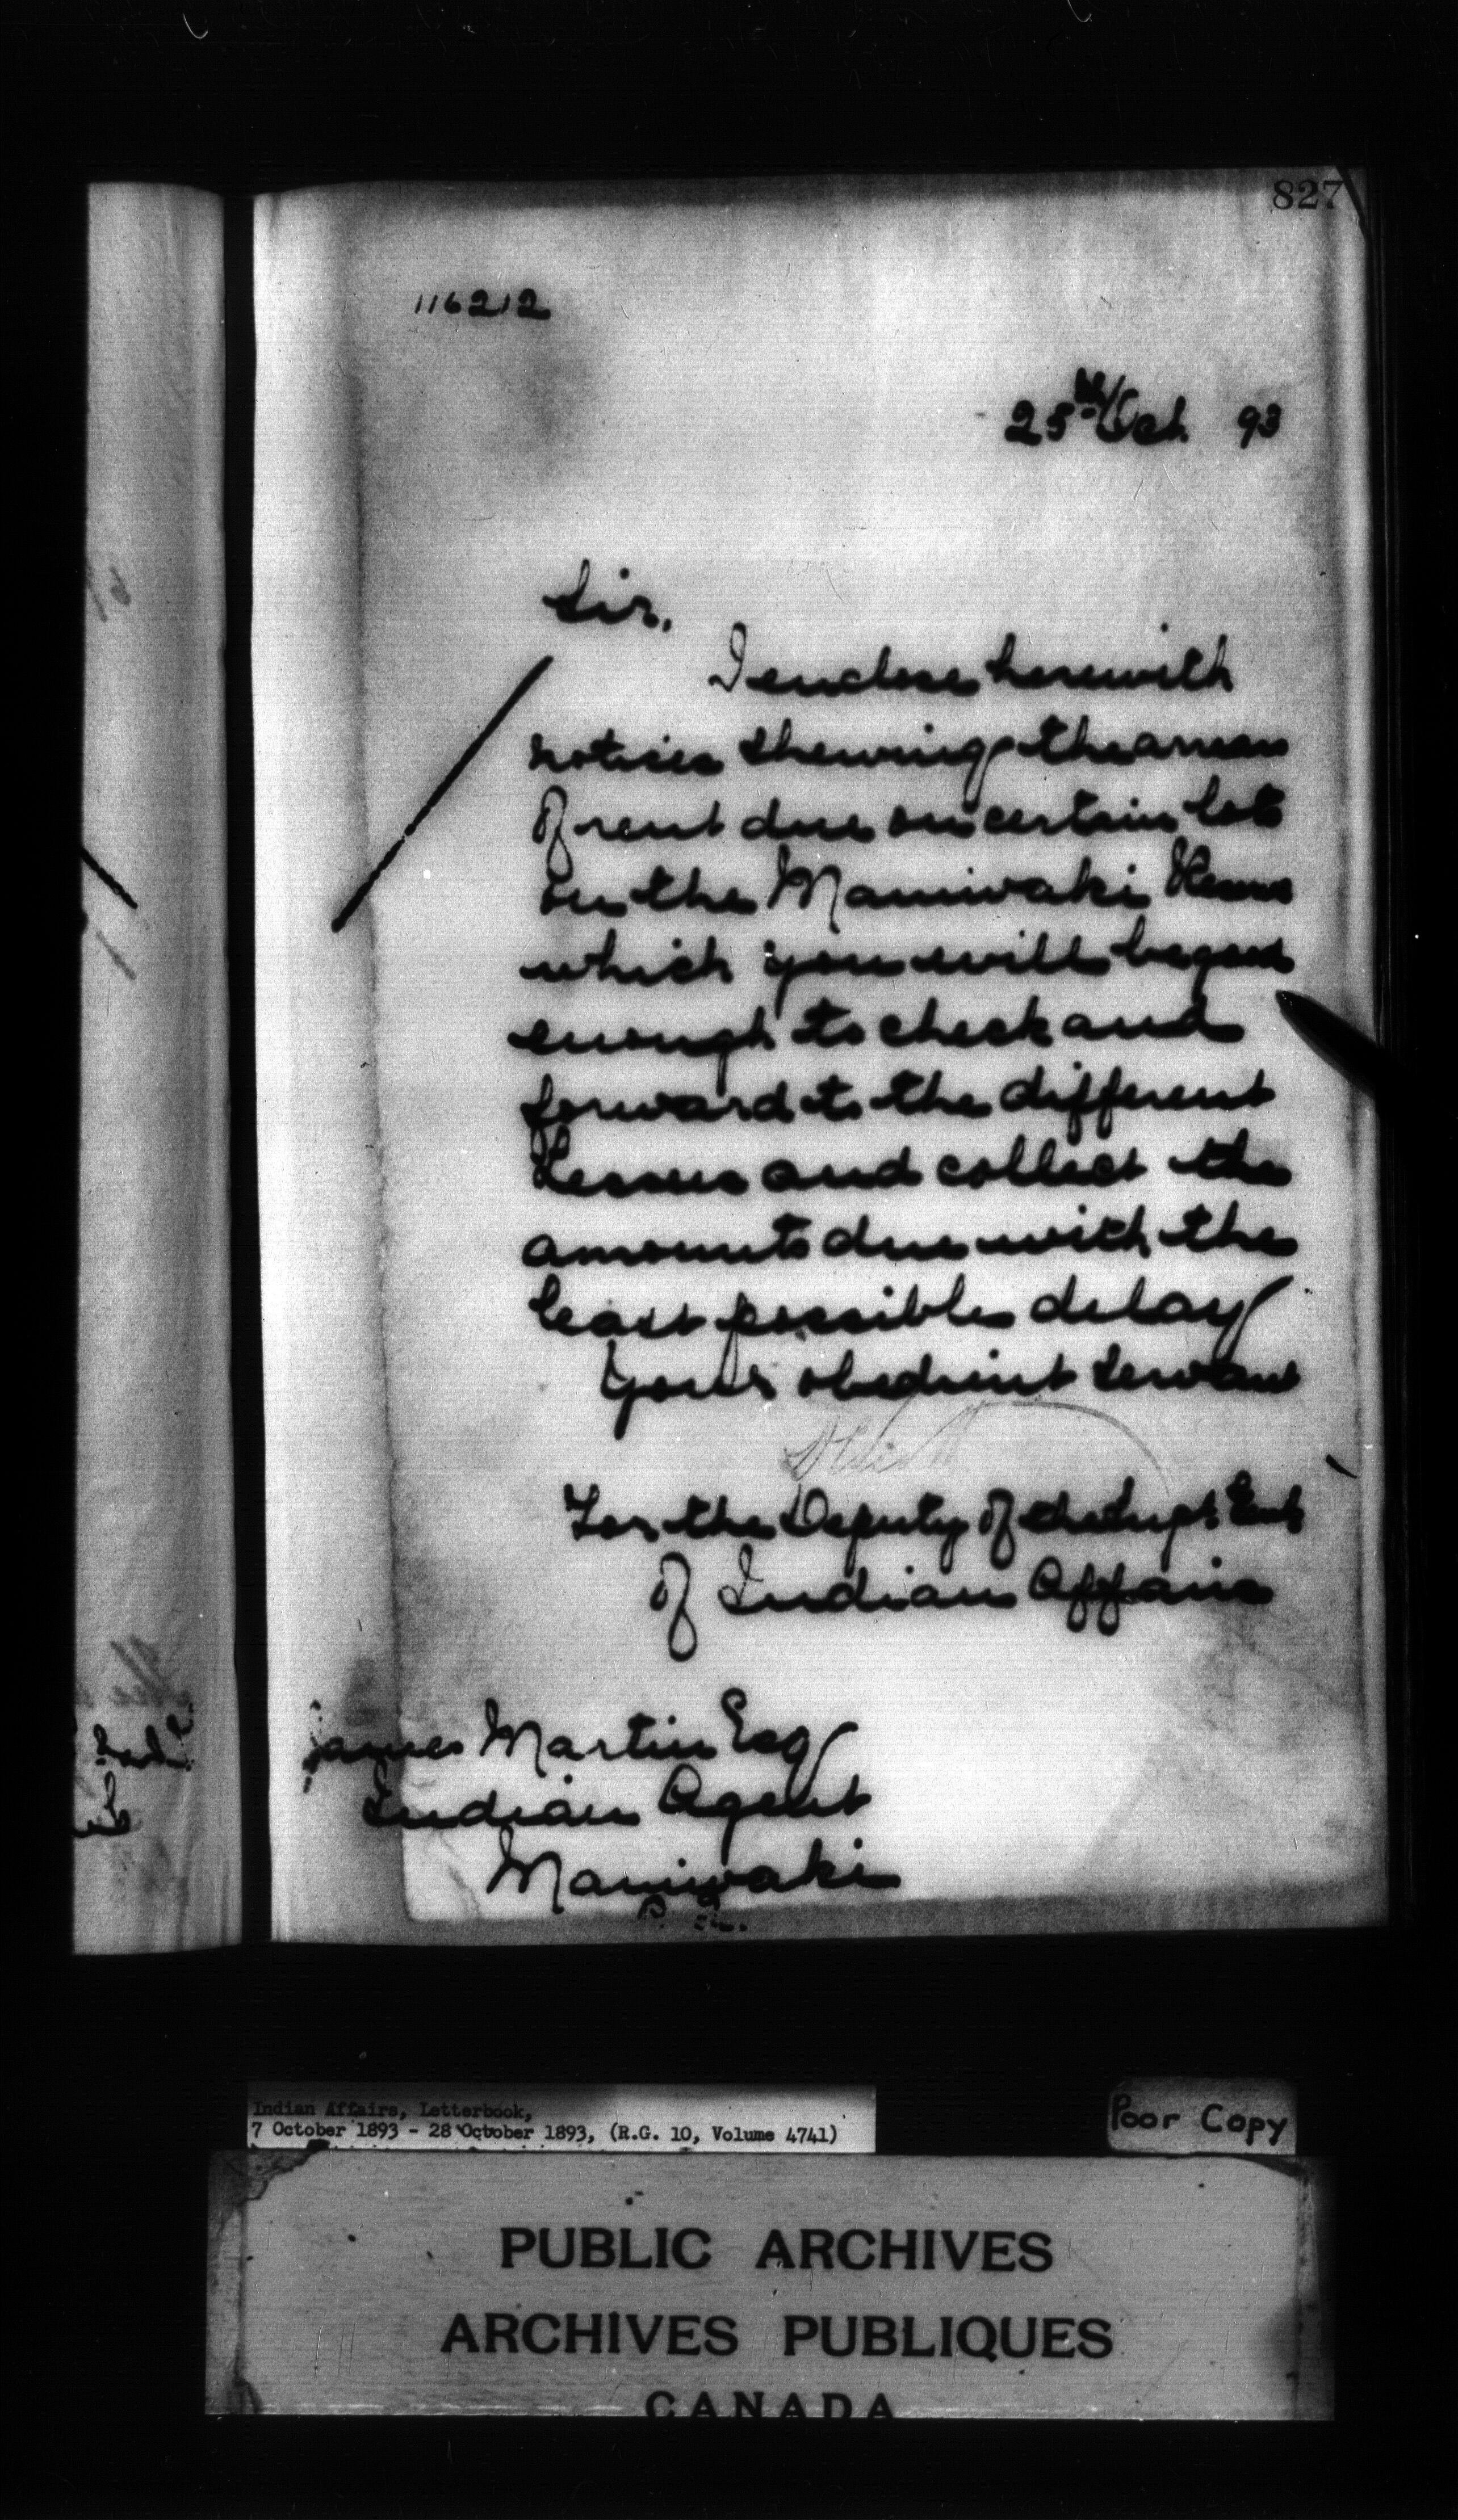 827
116212
25th Oct 93
Sir,
I enclose herewith
notices shewing the arrears
of rent due on certain lots
on the Maniwaki Reserve
which you will be good
enough to check and
forward to the different
Lessees and collect the
amounts due with the
least possible delay
Your obedient servant
For the Deputy of the Supt. Genl
of Indian Affairs
James Martin Esq
Indian Agent
Maniwaki
P. Q.
Indian Affairs, Letterbook,
7 October 1893 - 28 October 1893, (R.G. 10, Volume 4741)
Poor Copy
PUBLIC ARCHIVES
ARCHIVES PUBLIQUES
CANADA